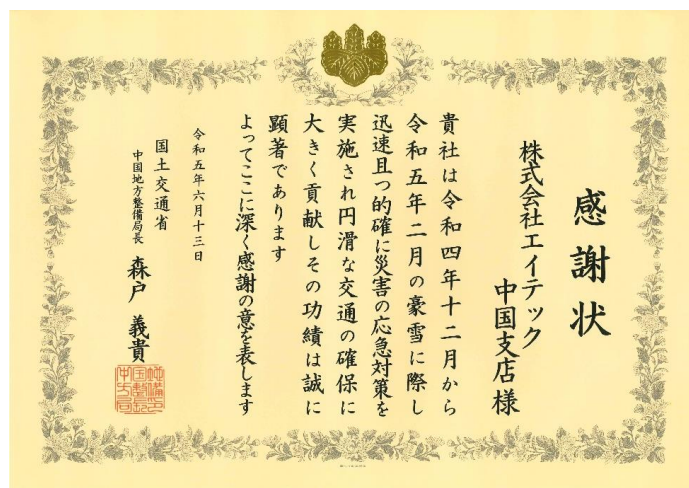 感謝状
株式会社エイテック
中国支店様
貴社は令和四年十二月から
令和五年二月の豪雪に際し
迅速且つ的確に災害の応急対策を
実施され円滑な交通の確保に
大きく貢献しその功績は誠に
顕著であります
よってここに深く感謝の意を表します
令和五年六月十三日
国土交通省
中国地方整備局長 森戸 義貴